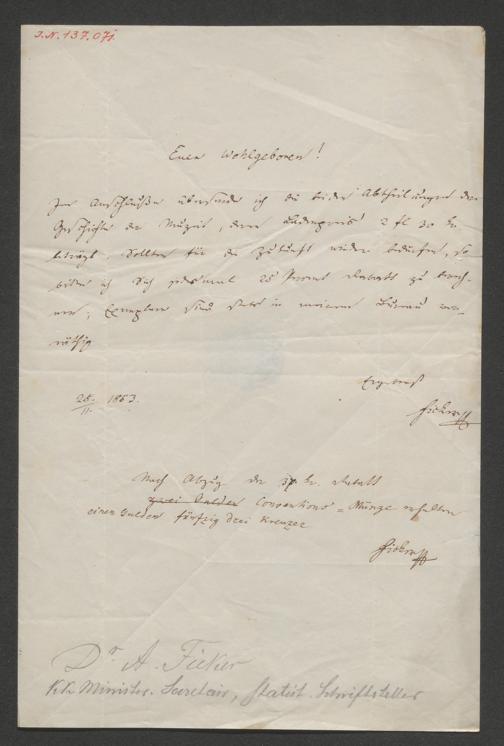 I.N. 137.071
Euer Wohlgeboren!
Im Anschluße übersende ich die beiden Abtheilungen der
Geschichte der Münzen, deren Ladenpreis 2 fl 30 kr.
beträgt. Sollten für die Zukunft wieder bedürfen, so
bitte ich Sich jedesmal 25 Percent Rabatt zu berech-
nen; Exemplare sind stets in meinem Bureau vor-
räthig.
Ergebenst
25/11. 1853.
Ficker
Nach Abzug der 37 kr. Rabatt
zwei Gulden Conventions-Münze erhalten
einen Gulden fünfzig drei Kreuzer
Ficker
Dr. A. Ficker
K.K. Minister. Secretair, Statist. Schriftsteller